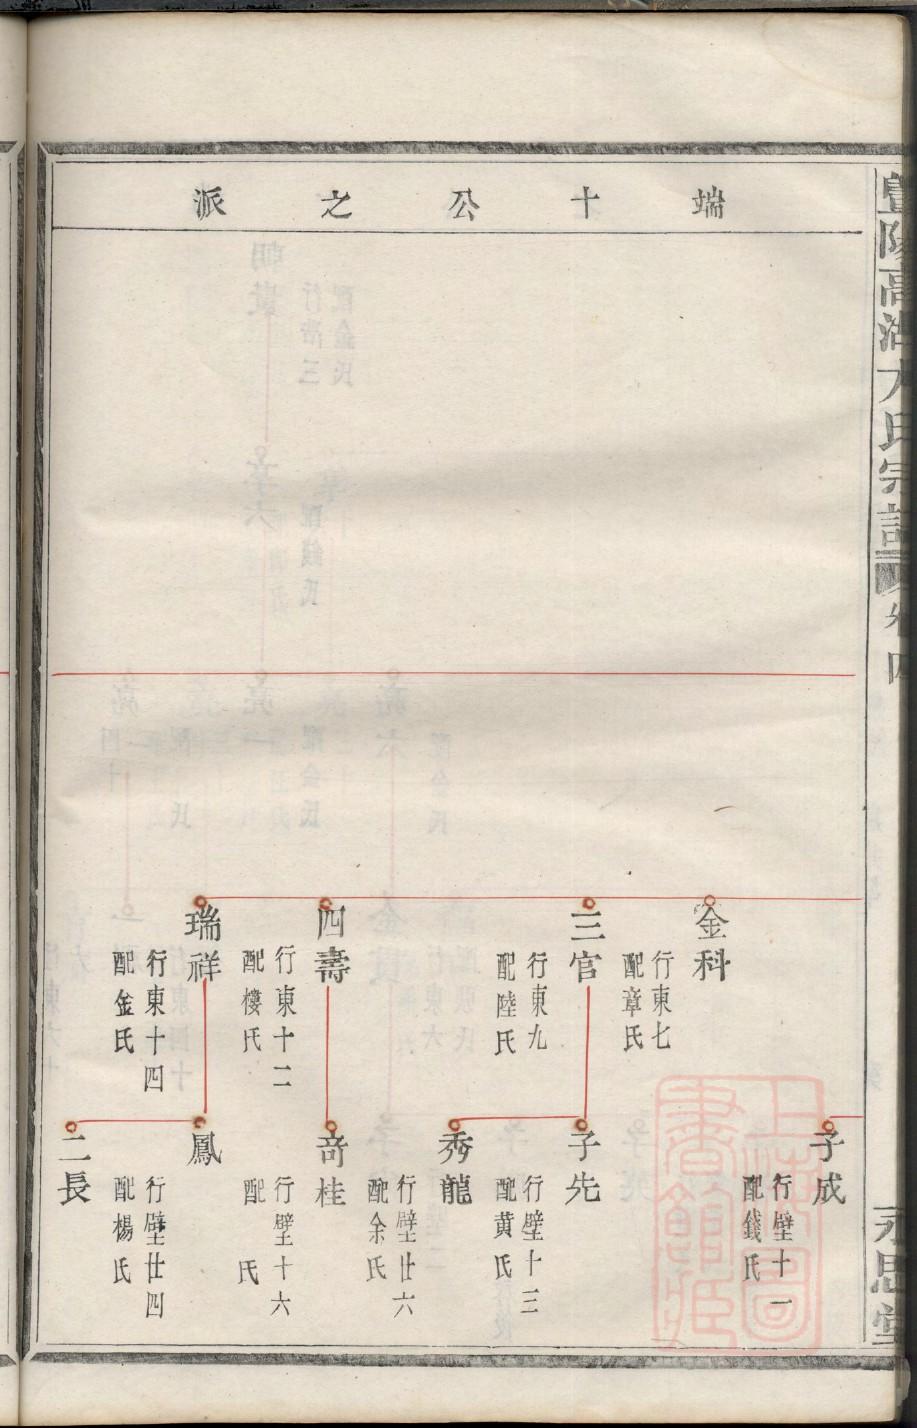 暨陽高湖方氏宗譜
卷四
永思堂
端十公之派
金科
行東七
配章氏
三官
行東九
配陸氏
四壽
行東十二
配樓氏
瑞祥
行東十四
配金氏
子成
行壁十一
配錢氏
子先
行壁十三
配黄氏
秀龍
行壁廿六
配余氏
奇桂
行壁十六
配 氏
鳳
二長
行壁廿四
配楊氏